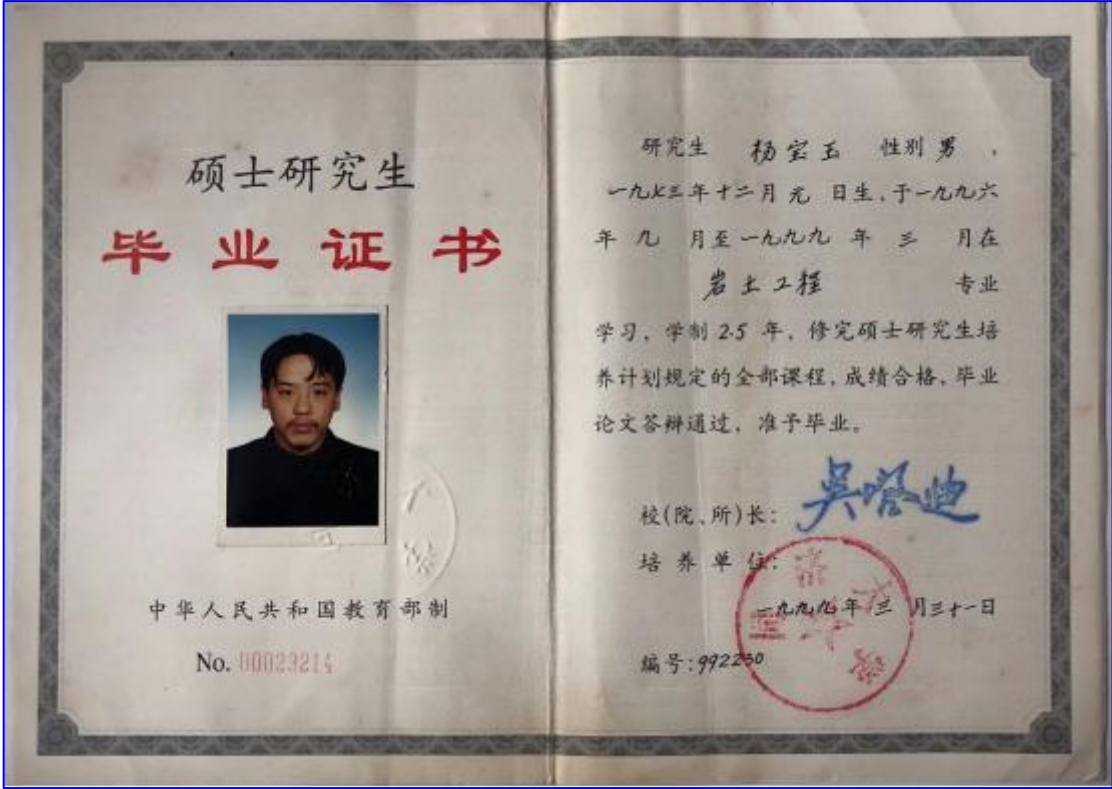 硕士研究生
毕业证书
中华人民共和国教育部制
No. 00023214
研究生 杨宝玉 性别 男 ,
一九七三年十二月 元 日生,于一九九六
年 九 月至一九九九 年 三 月在
岩土工程 专业
学习,学制 2.5 年,修完硕士研究生培
养计划规定的全部课程,成绩合格,毕业
论文答辩通过,准予毕业。
校(院、所)长: 吴启迪
培养单位:
一九九九年 三 月三十一日
编号:992230